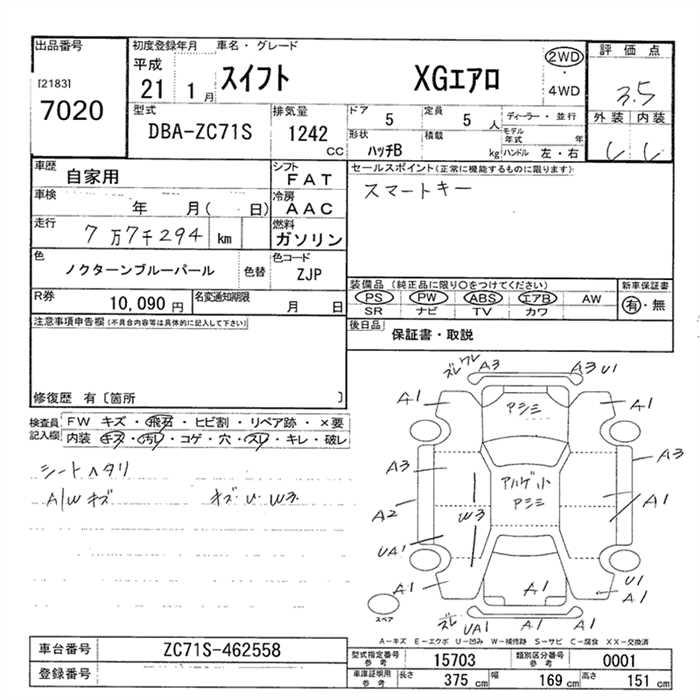 出品番号
[2183]
7020
初度登録年月
平成
21 1月
車名・グレード
スイフト XGエアロ
2WD
・
4WD
評価点
3.5
外装 内装
型式
DBA-ZC71S
排気量
1242
CC
ドア
5
定員
5人
ディーラー・並行
形状
ハッチB
積載
kg
モデル年式 年
ハンドル 左・右
車歴
自家用
シフト
FAT
車検
年 月( 日)
冷房
AAC
走行
7万7千294 km
燃料
ガソリン
色
ノクターンブルーパール
色替
色コード
ZJP
R券
10,090円
名変通知期限
月 日
セールスポイント(正常に機能するものに限ります)
スマートキー
装備品 (純正品に限り〇をつけてください)
PS PW ABS エアB AW
SR ナビ TV カワ
新車保証書
有・無
後日品
保証書・取説
注意事項申告欄(不具合内容等は具体的に記入して下さい)
修復歴 有〔箇所 〕
検査員記入欄
FW キズ・飛石・ヒビ割・リペア跡・×要
内装 キズ・汚レ・コゲ・穴・スレ・キレ・破レ
シートヘタリ
A/W キズ
キズ U W3
ズレ ワレ
A3
A3 U1
A1
アシミ
A1
A3
A3
アルゲ小
アシミ
A1
A2
W3
UA1
U1
A1
A1
A1
A1
ズレ
UA1
A1
スペア
A-キズ E-エクボ U-凹み W-補修跡 S-サビ C-腐食 XX-交換済
車台番号
ZC71S-462558
登録番号
型式指定番号
参考
15703
類別区分番号
参考
0001
車庫証明用
参考
長さ
375 cm
幅
169 cm
高さ
151 cm